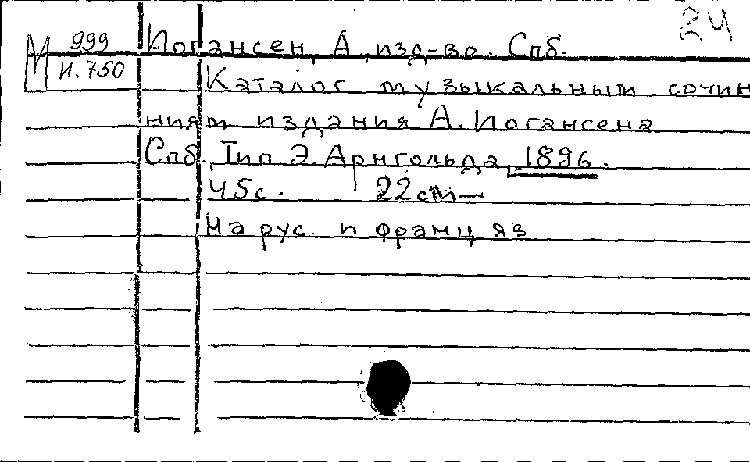 24
М 999 Иогансен, А, изд-во. Спб.
И.750
Каталог музыкальным сочин
ниям издания А. Иогансена
Спб, Тип Э. Арнгольда, 1896.
45с. 22см
На рус и франц яз